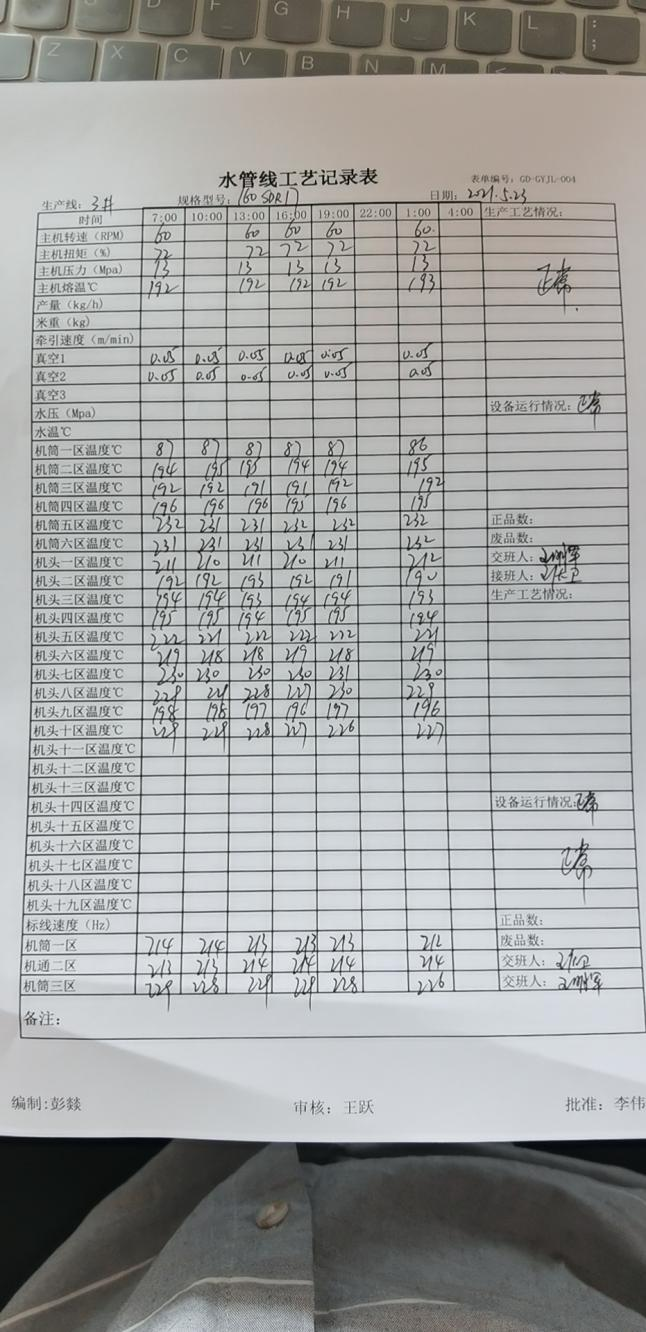 Z X C V B N M
F G H J K L : ;
水管线工艺记录表
表单编号：GD-GYJL-004
生产线：3# 规格型号：160 SDR17 日期：2021.5.23
时间 7:00 10:00 13:00 16:00 19:00 22:00 1:00 4:00 生产工艺情况：
主机转速（RPM） 60 60 60 60 60
主机扭矩（%） 72 72 72 72 72
主机压力（Mpa） 13 13 13 13 13 正常
主机熔温℃ 192 192 192 192 193
产量（kg/h）
米重（kg）
牵引速度（m/min）
真空1 0.05 0.05 0.05 0.05 0.05 0.05
真空2 0.05 0.05 0.05 0.05 0.05 0.05
真空3
水压（Mpa） 设备运行情况：正常
水温℃
机筒一区温度℃ 87 87 87 87 87 86
机筒二区温度℃ 194 195 195 194 194 195
机筒三区温度℃ 192 192 191 191 192 192
机筒四区温度℃ 196 196 196 195 196 195
机筒五区温度℃ 232 231 231 232 232 232 正品数：
机筒六区温度℃ 231 231 231 231 231 232 废品数：
机头一区温度℃ 211 210 211 210 211 212 交班人：
机头二区温度℃ 192 192 193 192 191 190 接班人：
机头三区温度℃ 194 194 193 194 194 193 生产工艺情况：
机头四区温度℃ 195 195 194 195 195 194
机头五区温度℃ 222 221 222 222 222 221
机头六区温度℃ 219 218 218 219 218 219
机头七区温度℃ 230 230 230 230 231 230
机头八区温度℃ 229 228 227 230 229
机头九区温度℃ 198 198 197 196 197 196
机头十区温度℃ 229 229 228 227 226 227
机头十一区温度℃
机头十二区温度℃
机头十三区温度℃
机头十四区温度℃ 设备运行情况：正常
机头十五区温度℃
机头十六区温度℃ 正常
机头十七区温度℃
机头十八区温度℃
机头十九区温度℃
标线速度（Hz） 正品数：
机筒一区 214 214 213 213 213 212 废品数：
机通二区 213 213 214 214 214 214 交班人：
机筒三区 229 228 229 229 228 226 交班人：
备注：
编制:彭燚 审核：王跃 批准：李伟